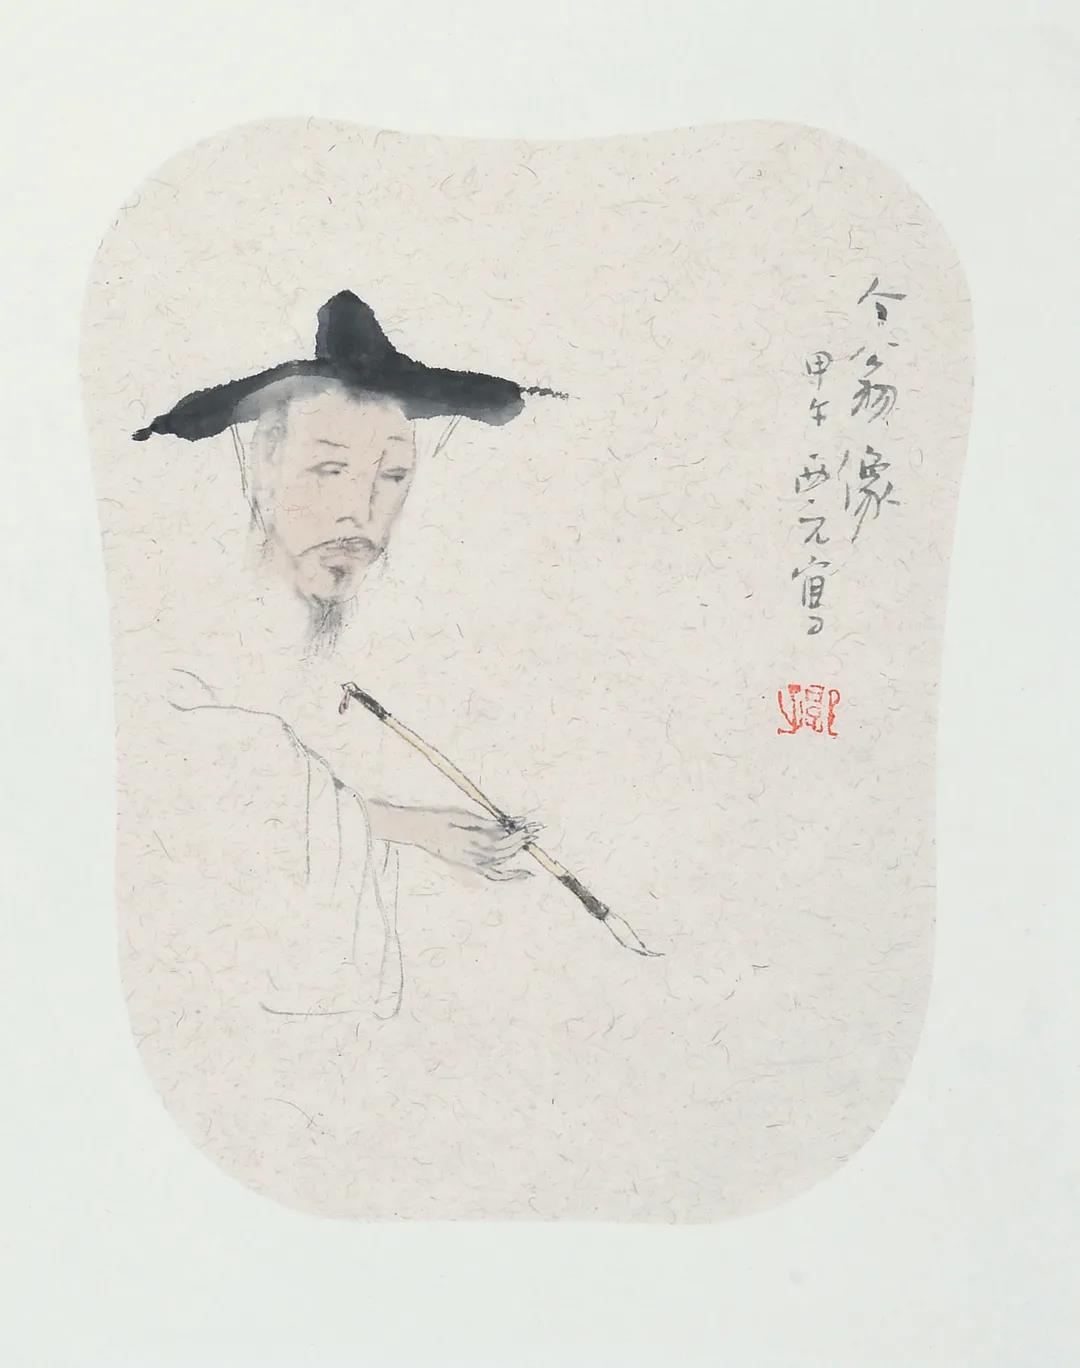 翁像
甲午西元寫